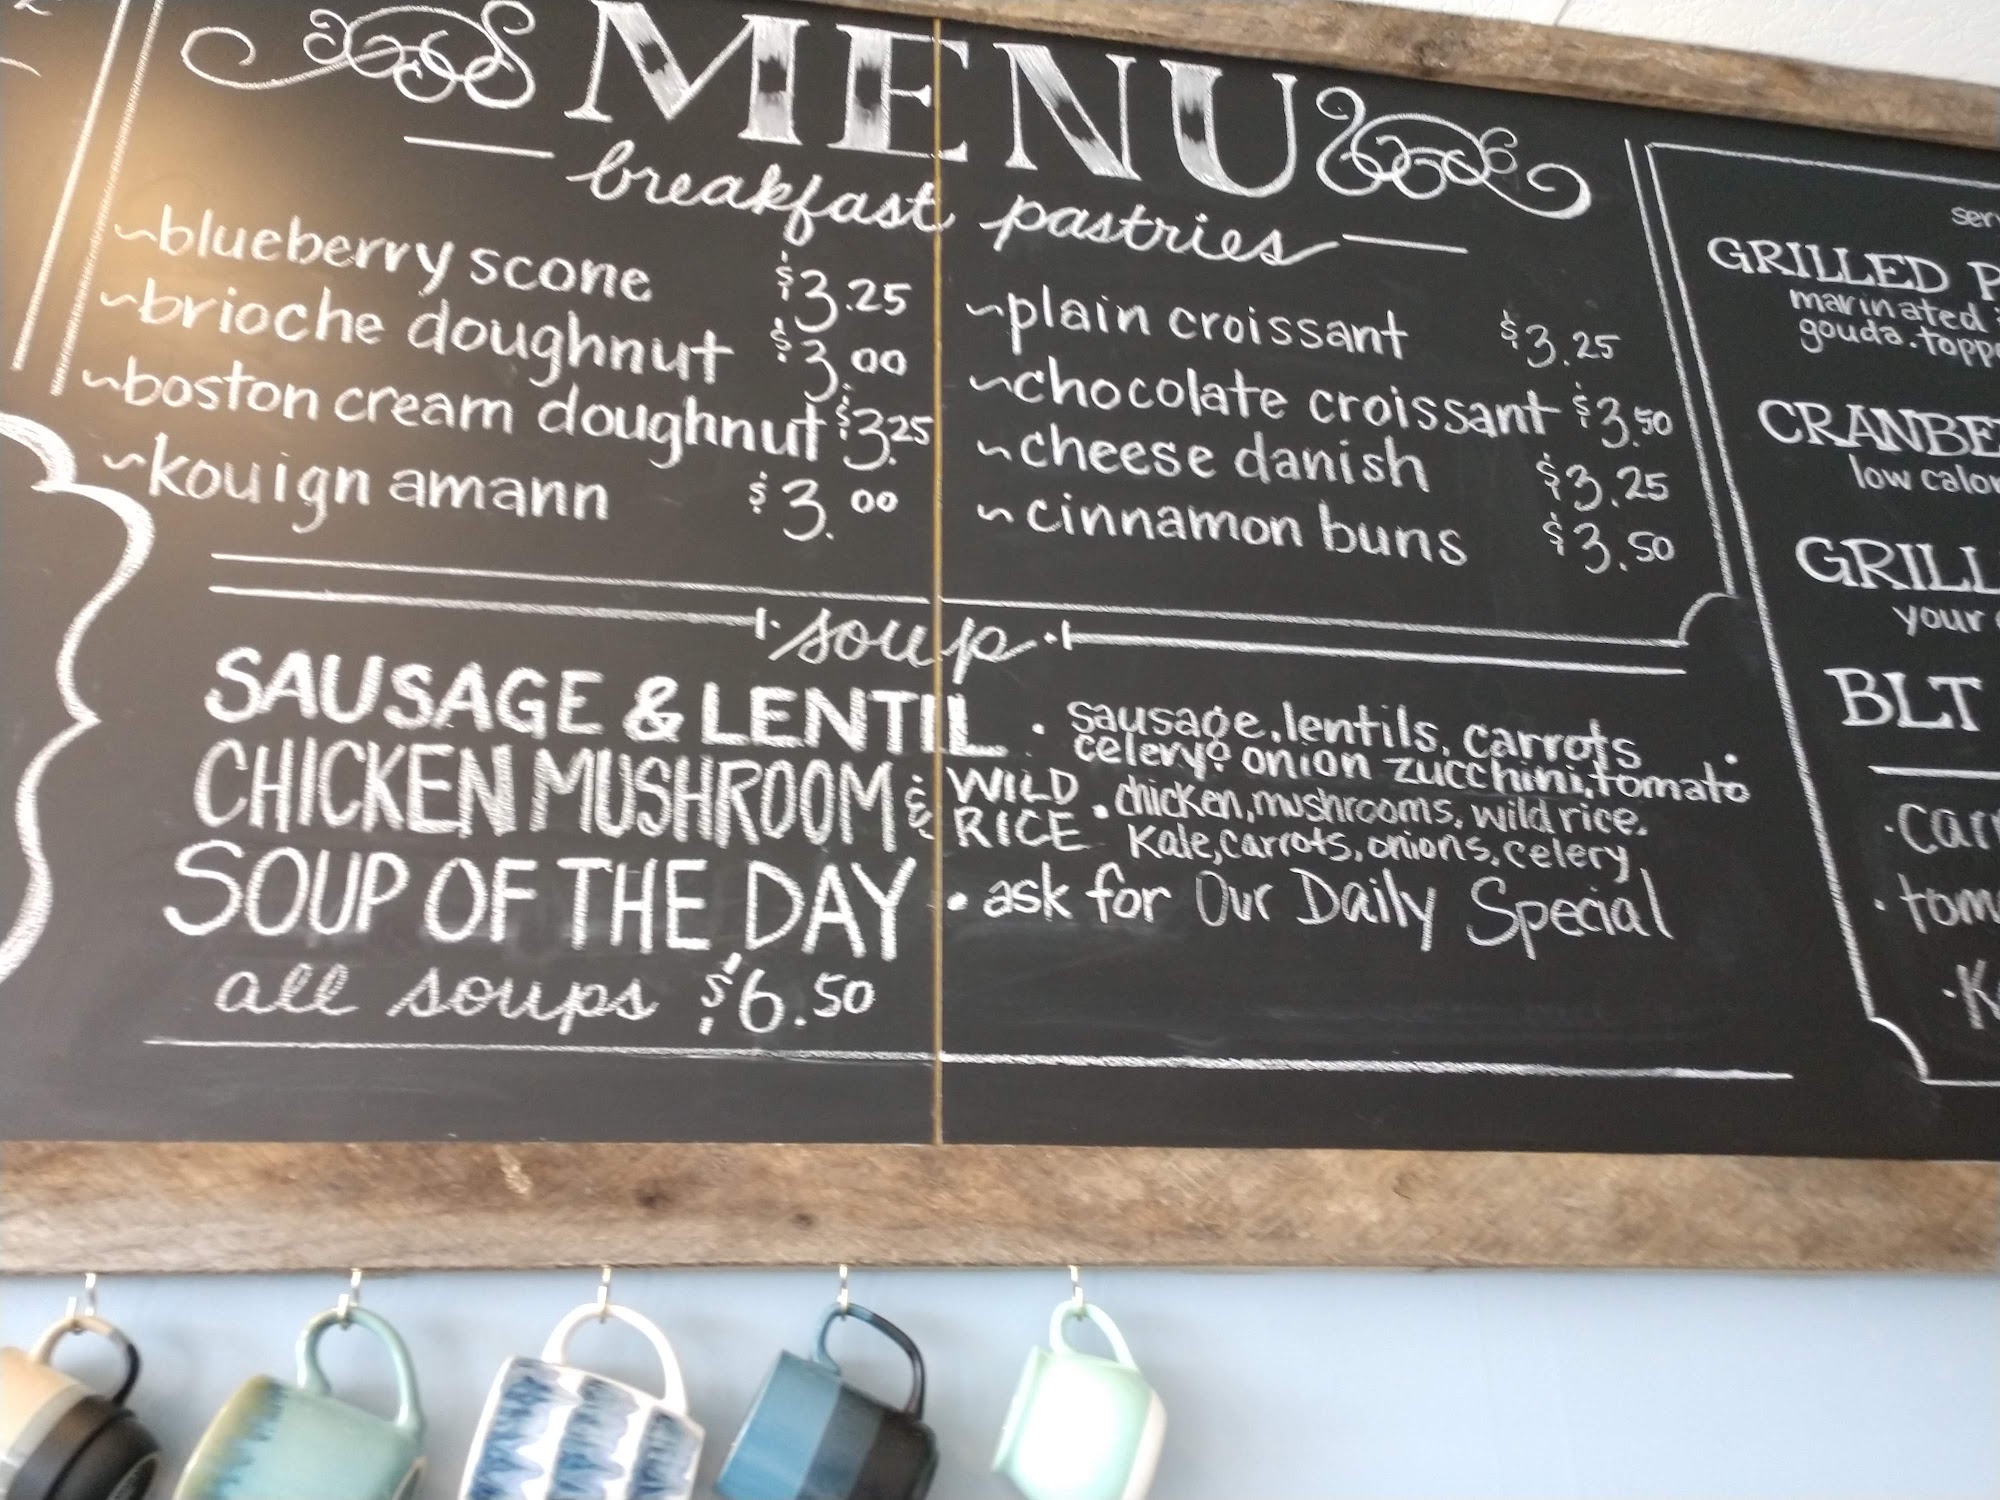 MENU
breakfast pastries
~blueberry scone $3.25
~brioche doughnut $3.00
~boston cream doughnut $3.25
~kouign amann $3.00
~plain croissant $3.25
~chocolate croissant $3.50
~cheese danish $3.25
~cinnamon buns $3.50
soup
SAUSAGE & LENTIL · sausage, lentils, carrots
celery & onion zucchini, tomato
CHICKEN MUSHROOM & WILD RICE · chicken, mushrooms, wild rice,
Kale, carrots, onions, celery
SOUP OF THE DAY · ask for Our Daily Special
all soups $6.50
GRILLED
marinated
gouda.
GRILL
your
BLT